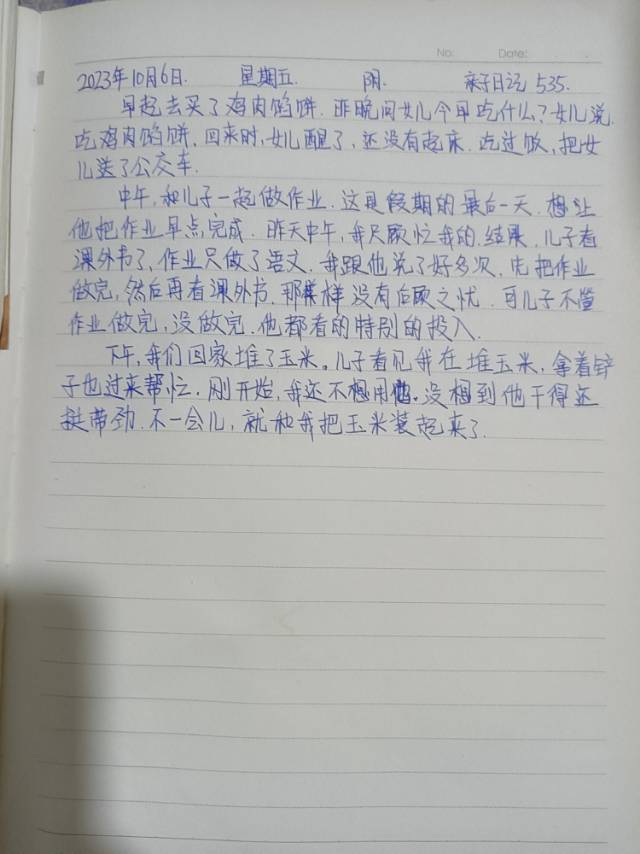 No: Date:
2023年10月6日. 星期五. 阴. 亲子日记 535.
早起去买了鸡肉馅饼. 昨晚问女儿今早吃什么?女儿说
吃鸡肉馅饼. 回来时,女儿醒了,还没有起床. 吃过饭,把女
儿送了公交车.
中午,和儿子一起做作业. 这是假期的最后一天. 想让
他把作业早点完成. 昨天中午,我只顾忙我的. 结果,儿子看
课外书了,作业只做了语文. 我跟他说了好多次,先把作业
做完,然后再看课外书. 那样没有后顾之忧. 可儿子不管
作业做完,没做完. 他都看的特别的投入.
下午,我们回家堆了玉米。儿子看见我在堆玉米,拿着锌
子也过来帮忙. 刚开始,我还不想用他. 没想到他干得还
挺带劲. 不一会儿,就和我把玉米装起来了.